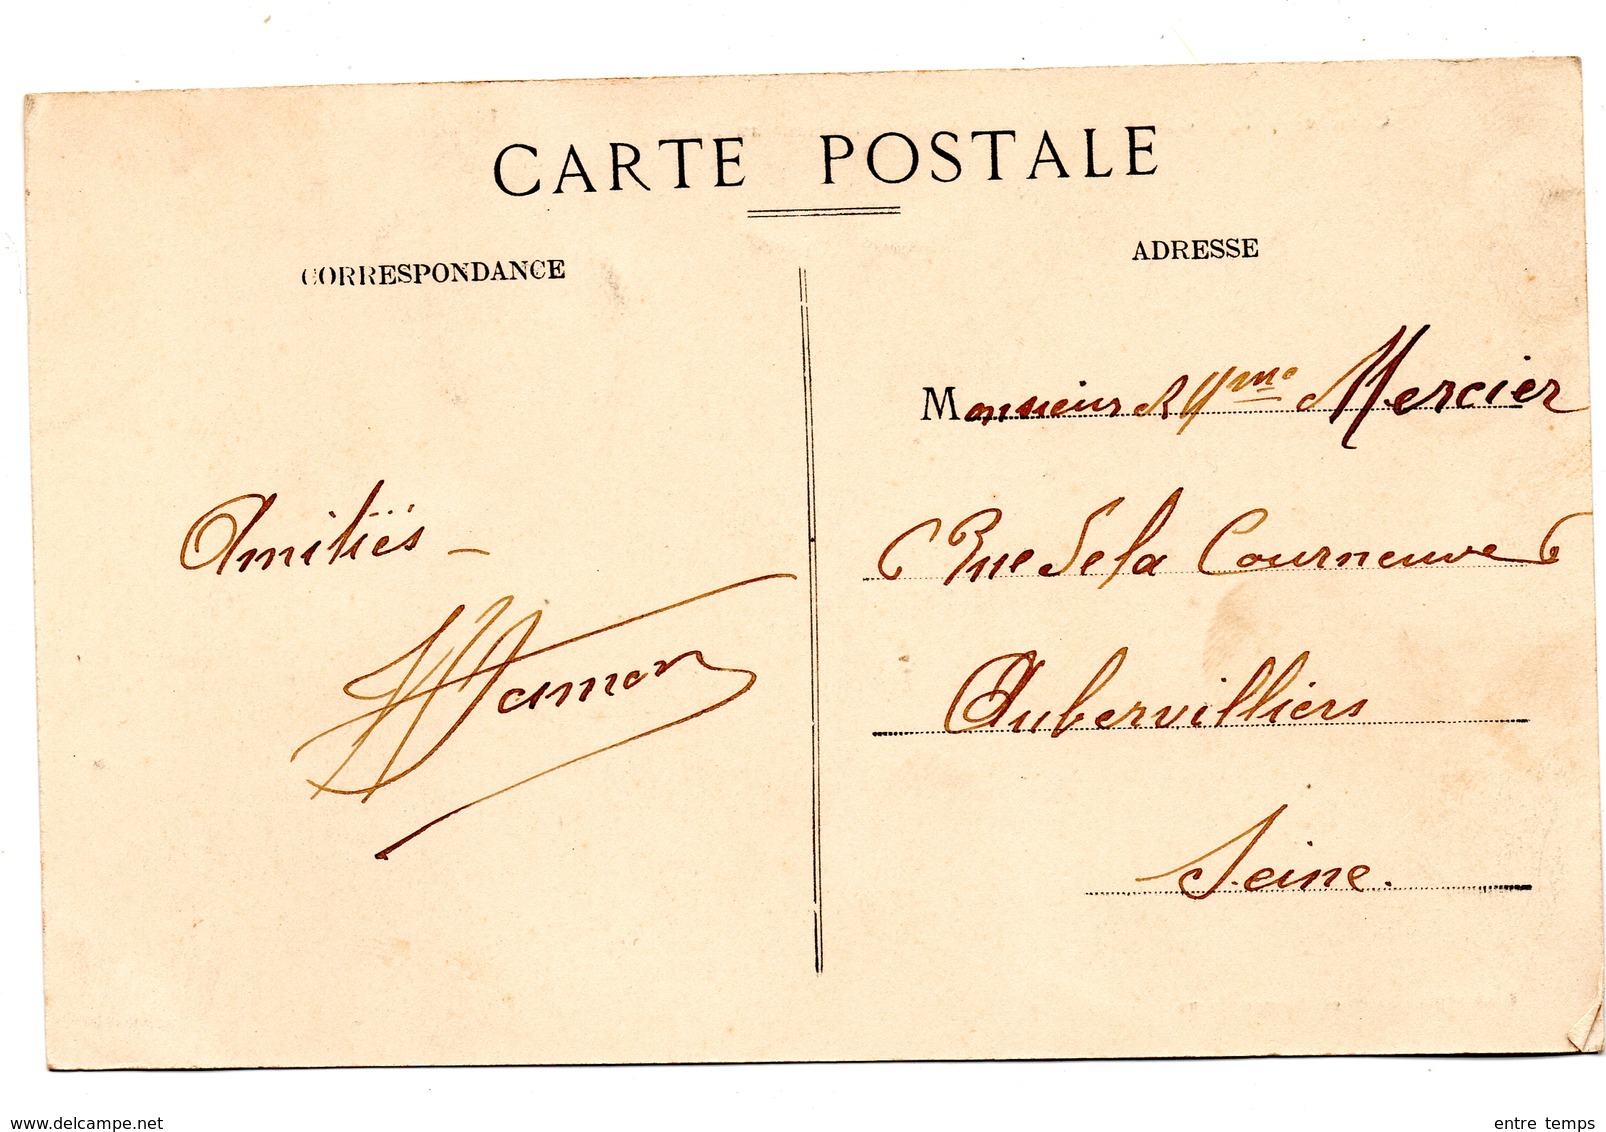 CARTE POSTALE
CORRESPONDANCE
Amitiés -
ADRESSE
Monsieur & Mme Mercier
Rue de la Courneuve 6
Aubervilliers
Seine.
delcampe.net
entre temps